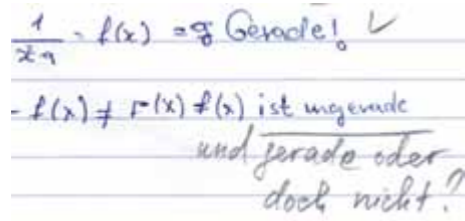 1 - f(x) = g Gerade! ✓
- f(x) ≠ r(x) f(x) ist ungerade
und gerade oder
doch nicht?